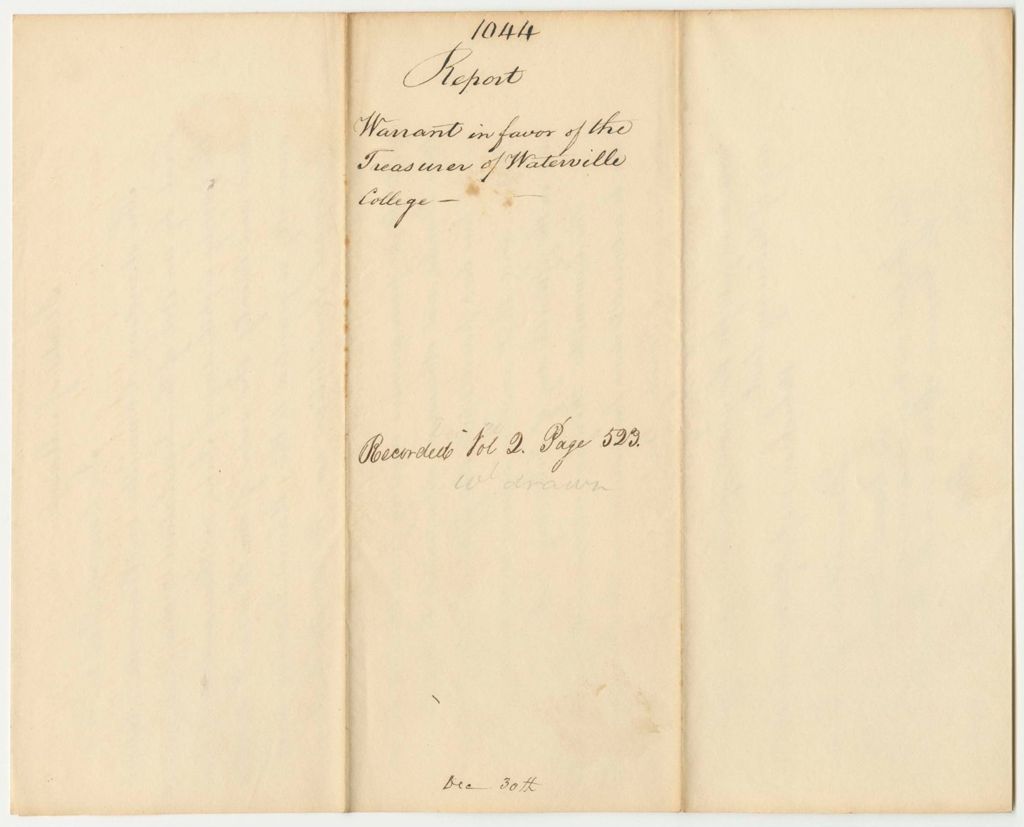 1044
Report
Warrant in favor of the
Treasurer of Waterville
College —
Recorded Vol 2. Page 523.
Wt drawn
Dec 30th